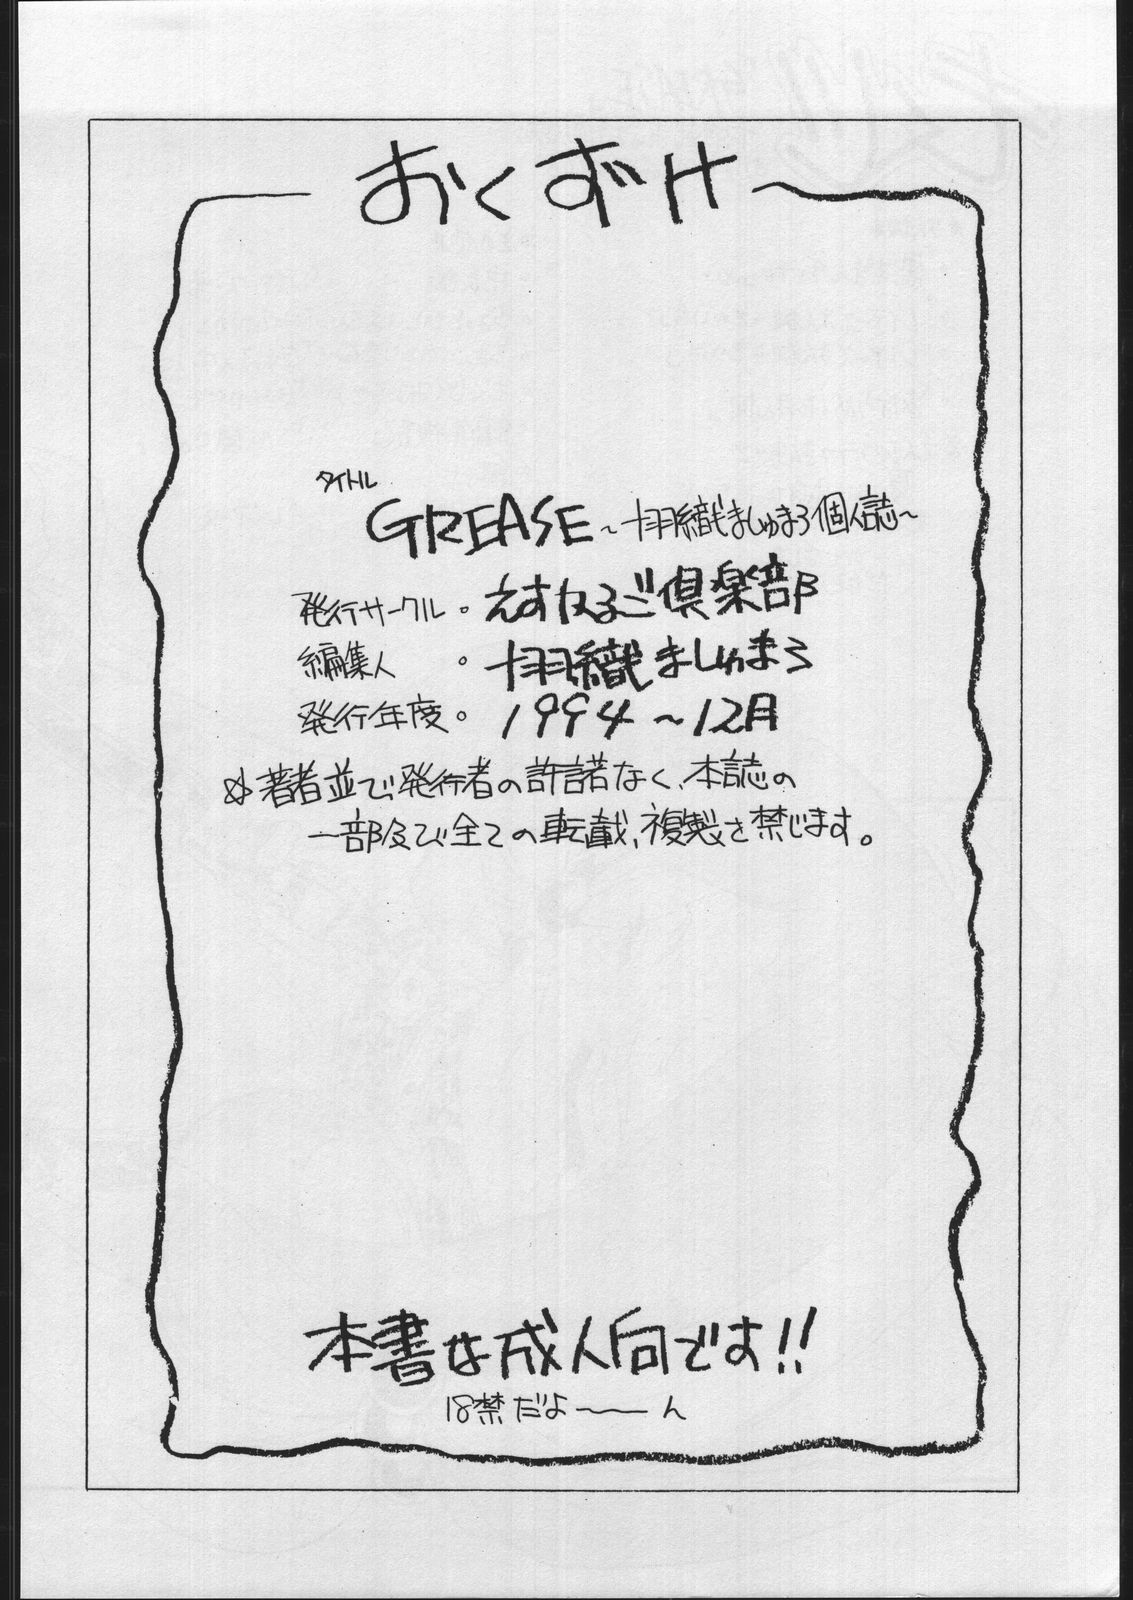 おくずけ
タイトル
GREASE～羽織ましゅまろ個人誌～
発行サークル。えすかるご倶楽部
編集人。羽織ましゅまろ
発行年度。1994～12月
☆著者並び発行者の許諾なく、本誌の
一部及び全ての転載、複製を禁じます。
本書は成人向です!!
18禁だよ～ん